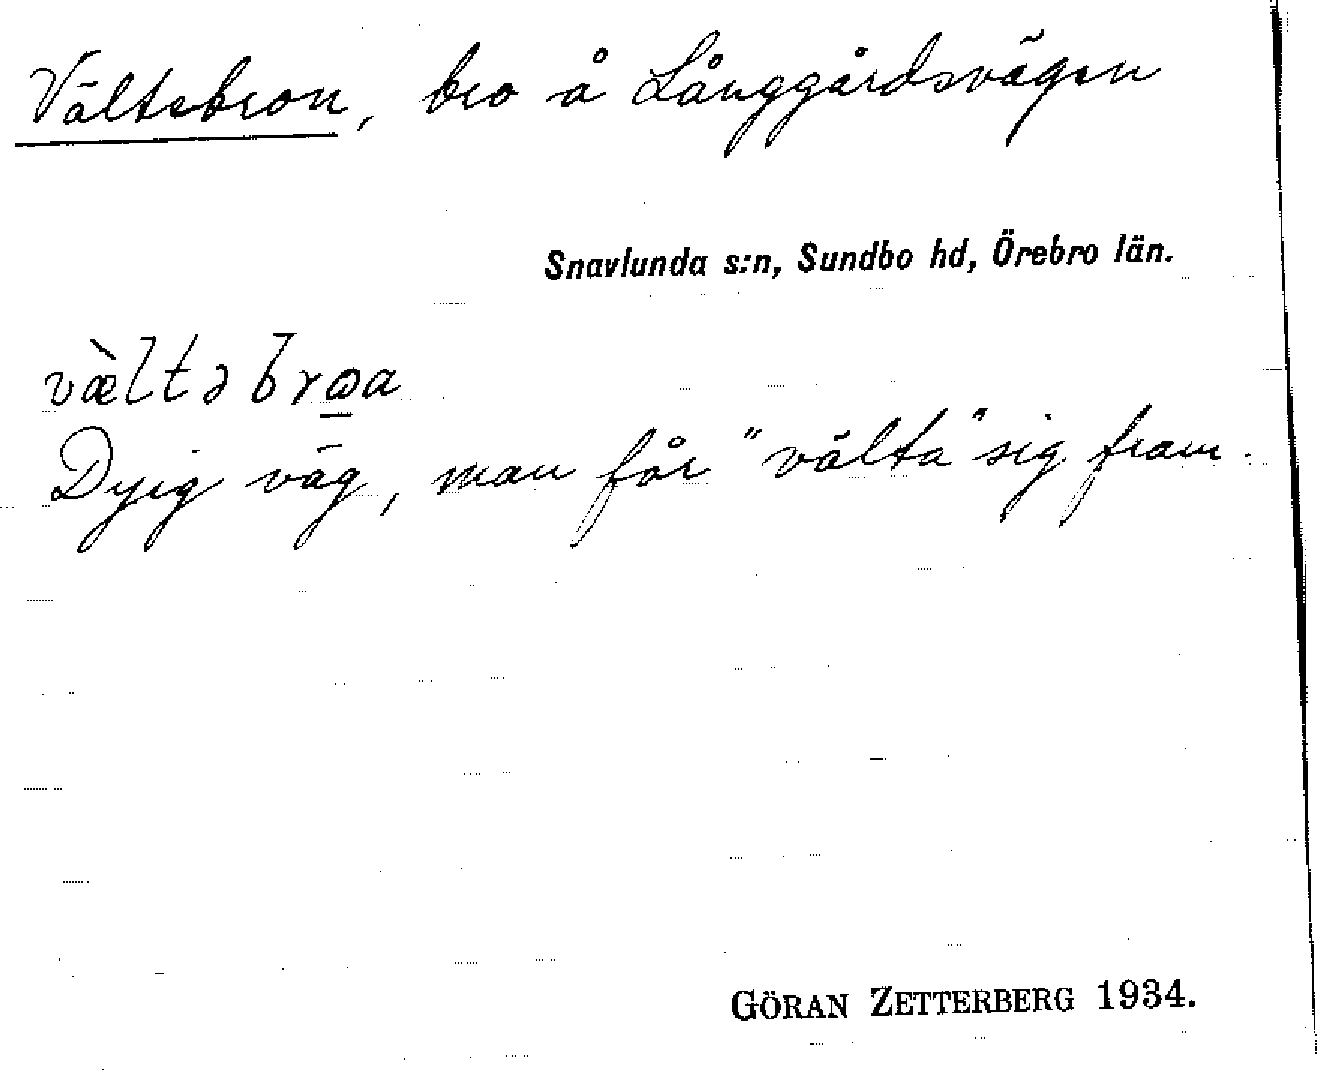 Vältebron, bro å Långgårdsvägen
Snavlunda s:n, Sundbo hd, Örebro län.
væ̀ltəbrɷa
Dyig väg, man får "välta" sig fram.
GÖRAN ZETTERBERG 1934.